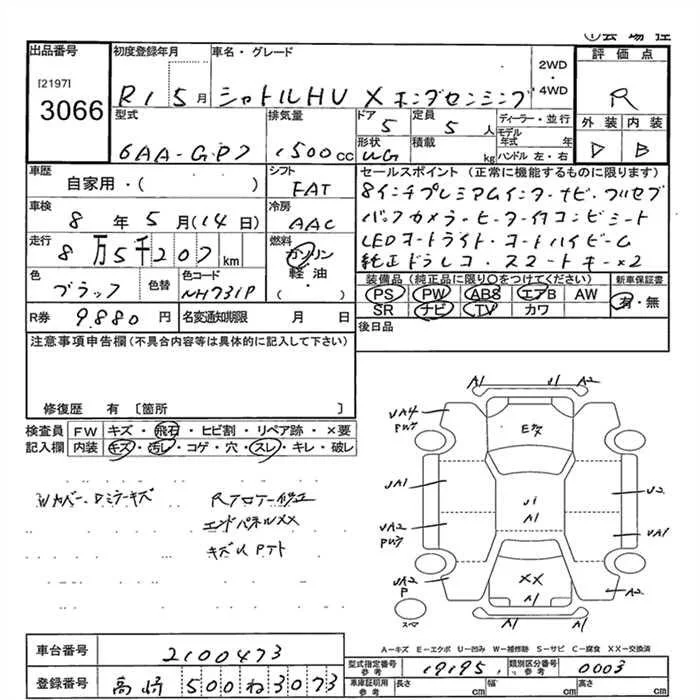 ①会場控
出品番号
[2197]
3066
初度登録年月
R1 5月
車名・グレード
シャトルHV X ホンダセンシング
2WD
・
4WD
評価点
R
外装 内装
D B
型式
6AA-GP7
排気量
1500cc
ドア
5
定員
5人
ディーラー・並行
モデル
年式 年
形状
WG
積載
kg
ハンドル 左・右
車歴
自家用・( )
シフト
FAT
車検
8年5月(14日)
冷房
AAC
走行
8万5千207km
燃料
ガソリン
軽油
( )
色
ブラック
色替
色コード
NH731P
R券
9,880円
名変通知期限 月 日
セールスポイント (正常に機能するものに限ります)
8インチプレミアムインターナビ・フルセグ
バックカメラ・ヒーター付コンビシート
LEDオートライト・オートハイビーム
純正ドラレコ・スマートキー×2
装備品(純正品に限り○をつけてください)
新車保証書
PS PW ABS エアB AW
SR ナビ TV カワ
有・無
後日品
注意事項申告欄(不具合内容等は具体的に記入して下さい)
修復歴 有 〔箇所 〕
検査員
記入欄
FW キズ・飛石・ヒビ割・リペア跡・×要
内装 キズ・汚レ・コゲ・穴・スレ・キレ・破レ
Wカバー・Dミラーキズ
Rフロアー修正
エンドパネルXX
キズU Pアト
A1 U1 A2
UA4
Pアト
Eス
UA1
U1
A1
U2
UA2
Pアト
UA1
UA2
P
XX
A1
A2
スペア
A-キズ E-エクボ U-凹み W-補修跡 S-サビ C-腐食 XX-交換済
車台番号
2100473
登録番号
高崎 500 ね 3073
型式指定番号
参考
19195
類別区分番号
参考
0003
車庫証明用
参考
長さ cm
幅 cm
高さ cm